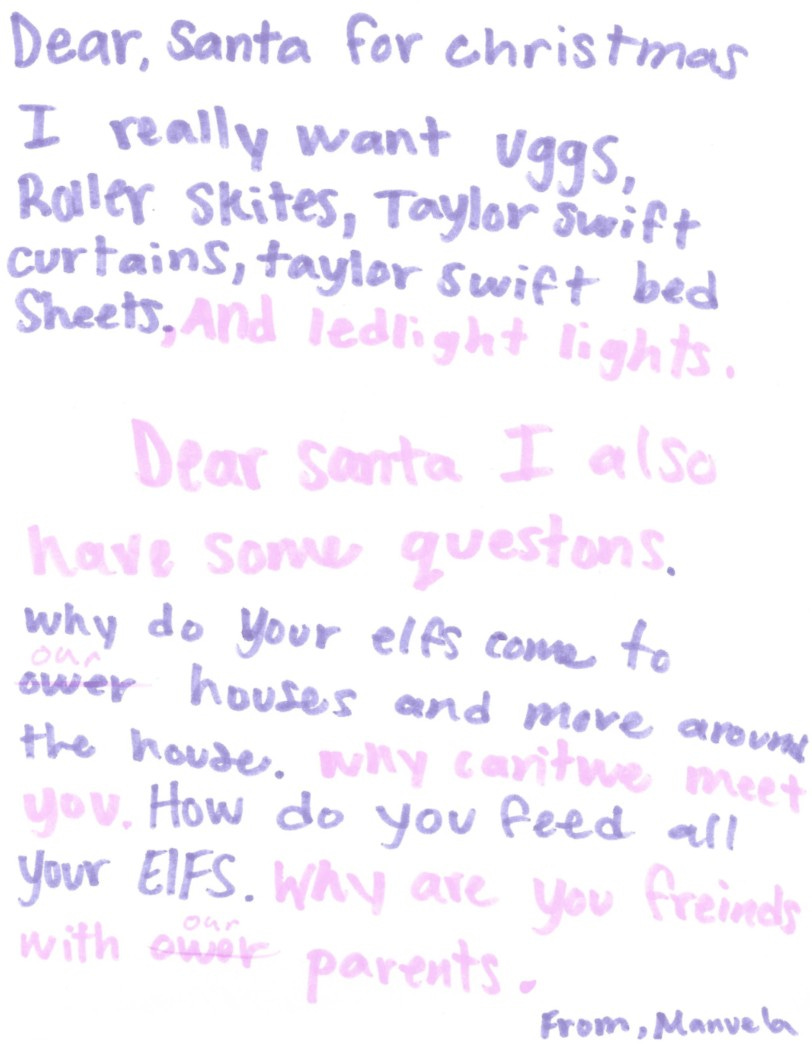 Dear, Santa for christmas
I really want uggs,
Roller Skites, Taylor swift
curtains, taylor swift bed
Sheets, And ledlight lights.
Dear santa I also
have some questons.
why do your elfs come to
our
ower houses and move around
the house. why can'twe meet
you. How do you feed all
your ElFS. Why are you freinds
our
with ower parents.
From, Manuela